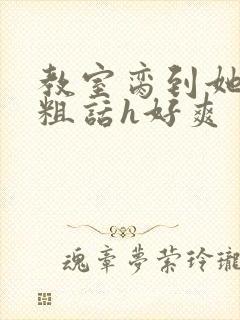 教室脔到她
粗話h好爽
魂章夢萦玲瓏